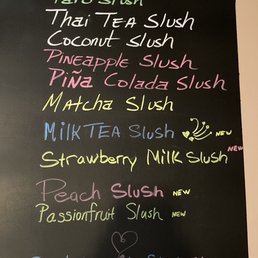 Taro Slush
Thai TEA Slush
Coconut Slush
Pineapple Slush
Piña Colada Slush
Matcha Slush
MilkTEA Slush NEW
Strawberry Milk Slush NEW
Peach Slush NEW
Passionfruit Slush NEW